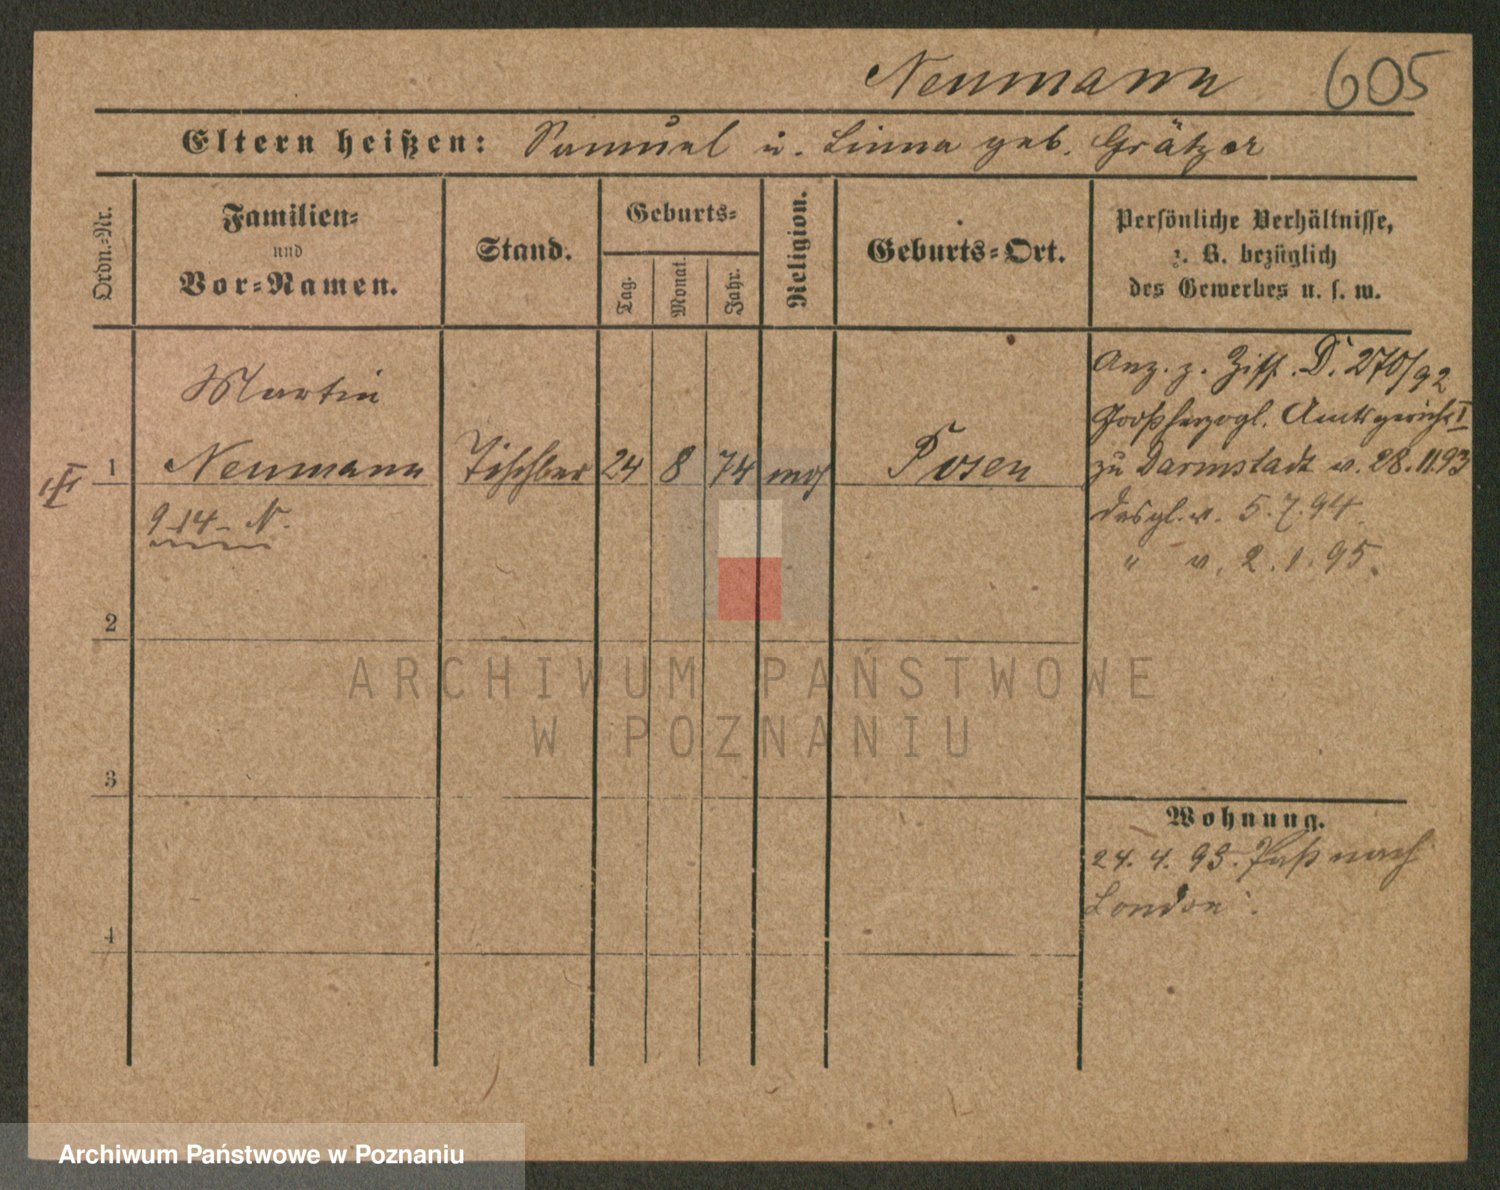 Neumann 605
Eltern heißen: Samuel u. Linna geb. Grätzer
Ordn.-Nr.
Familien-
und
Vor-Namen.
Stand.
Geburts-
Tag.
Monat.
Jahr.
Religion.
Geburts-Ort.
Persönliche Verhältnisse,
z. B. bezüglich
des Gewerbes u. s. w.
Martin
1 Neumann 24 8 74 mos Posen
9-14- N.
Anz. z. Ziff. D. 270/92
Großherzogl. Amtsgericht I
zu Darmstadt v. 28.11.93
desgl. v. 5.7.94.
" v. 2.1.95.
2
3
4
Wohnung.
24.4.93. Paß nach
London.
ARCHIWUM PAŃSTWOWE
W POZNANIU
Archiwum Państwowe w Poznaniu